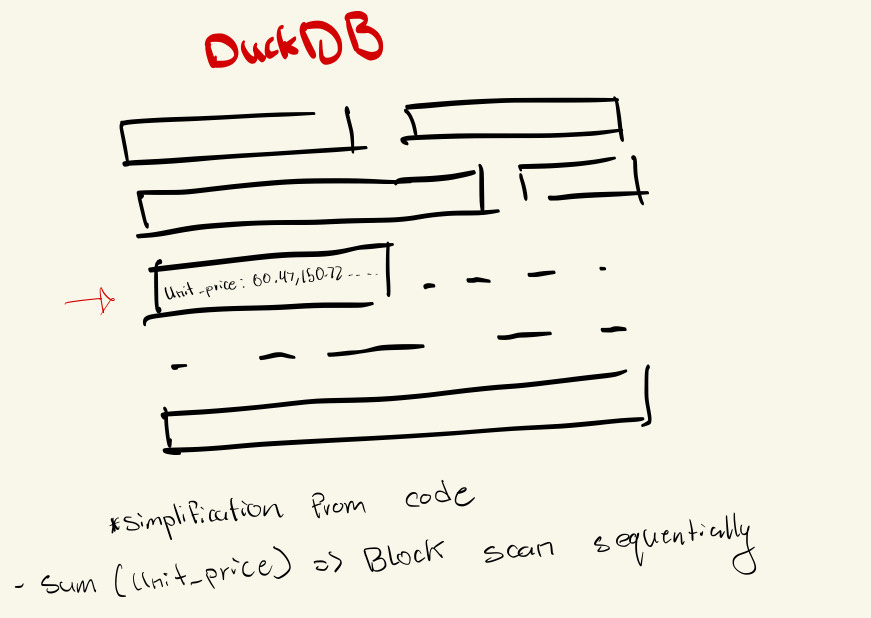 DuckDB
Unit_price: 60.47,150.72----
*simplification from code
- sum (Unit_price) => Block scan sequentially